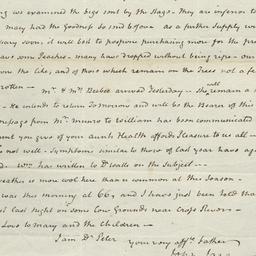 ing we examined the bags sent by the Stage - They are inferior to
many had the Goodness to send to You as a further Supply we
very soon, it will be best to postpone purchasing more for the pre
have some Peaches - many have dropped without being ripe - one
was the like, and of those which remain on the Trees not a fe
rotten - Mr & Mrs Beebee arrived Yesterday - she remain a
will
- He intends to return Tomorrow and will be the Bearer of this
message from Mr Munro to William has been communicated
count you give of your aunts Health affords Pleasure to us all -
is not well - Symptoms similar to those of last year have aga
ed Wm has written to Dr Watts on the Subject -
weather is more cool here than is common at this Season -
was this morning at 66, and I have just been told that
st last night on some Low Grounds near Cross River -
Love to Mary and the Children -
I am Dr Peter
Your very affte Father
John Jay